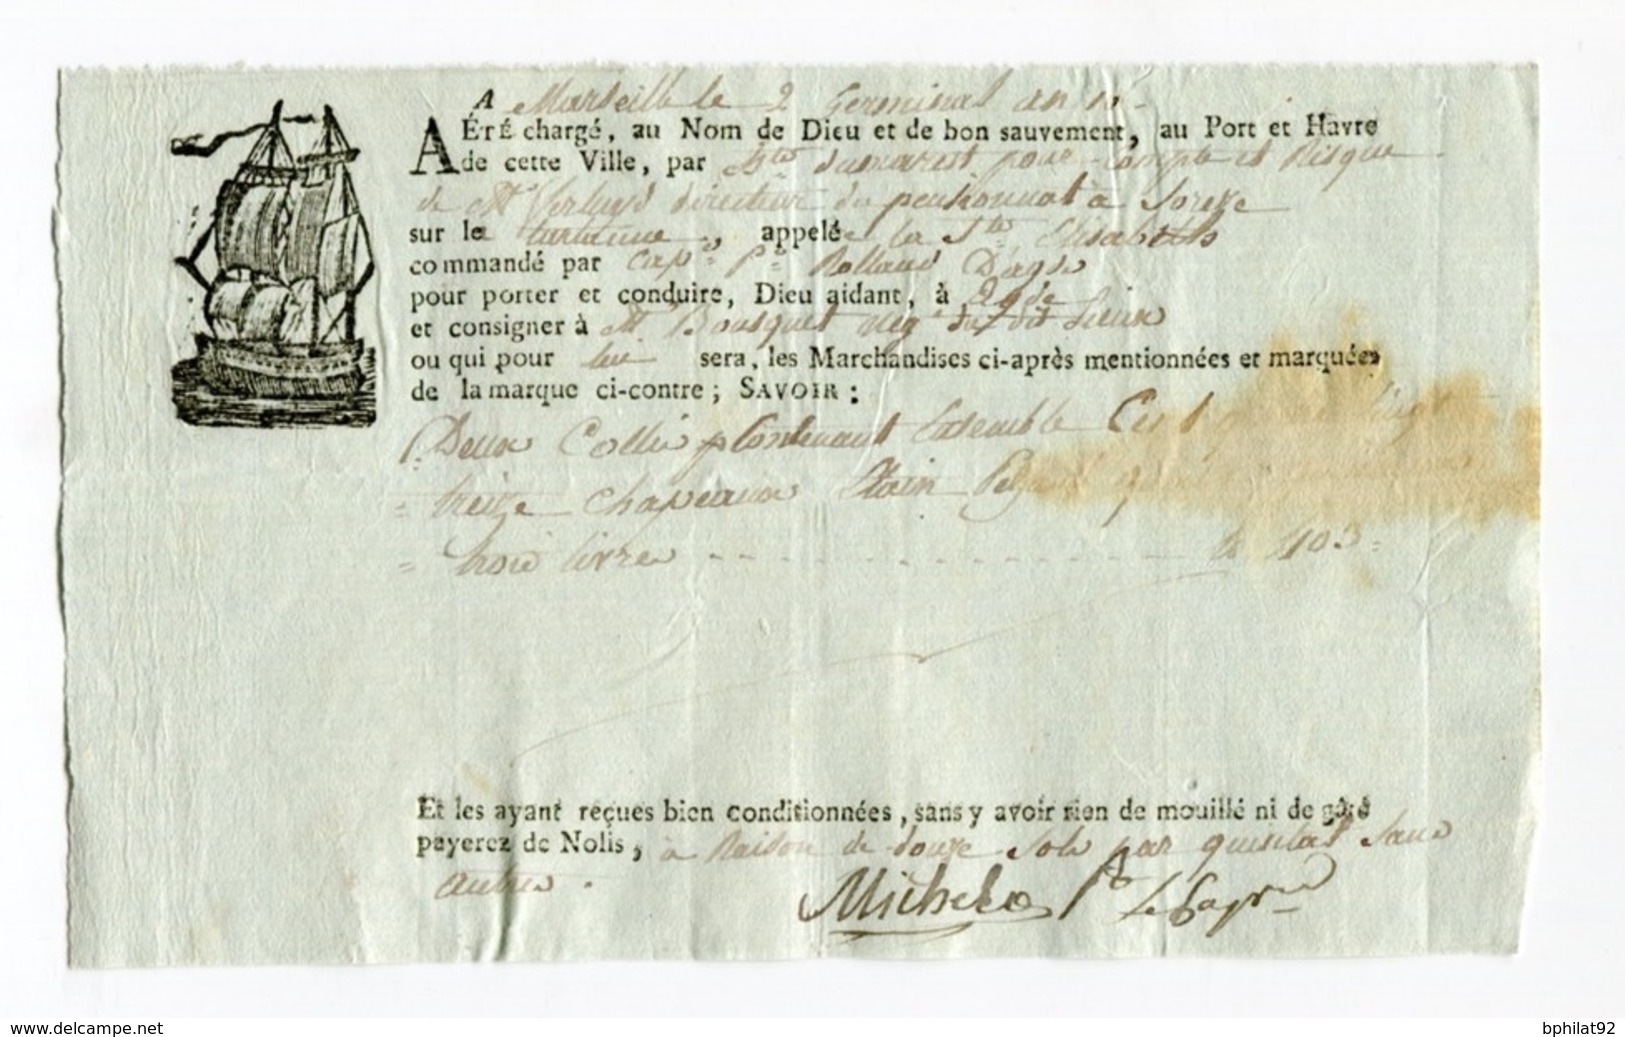 A Marseille le 2 Germinal an 10
A ÉTÉ chargé, au Nom de Dieu et de bon sauvement, au Port et Havre
de cette Ville, par hte dumarest pour compte et Risque
de Mr directeur du pensionnat à Sorèze
sur le tartanne, appelée la Ste Elisabeth
commandé par Capne Rolland Dagde
pour porter et conduire, Dieu aidant, à Agde
et consigner à Mr Bousquet neg. du dit Lieux
ou qui pour lui sera, les Marchandises ci-après mentionnées et marquées
de la marque ci-contre; SAVOIR:
Deux Collis Contenant Ensemble Cent
treize chapeaux
= trois livres 103 =
Et les ayant reçues bien conditionnées, sans y avoir rien de mouillé ni de gâté
payerez de Nolis, à Raison de douze Sols par quintal Sans
autres.
Michel Pr Le Capne
www.delcampe.net bphilat92